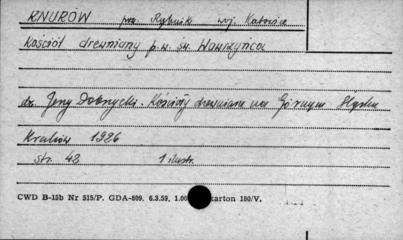 KNURÓW pow. Rybnik woj. Katowice
Kościół drewniany p.w. św. Wawrzyńca
dr. Jerzy Dobrzycki. Kościoły drewniane na Górnym Śląsku
Kraków 1926
str. 43 1 ilustr.
CWD B-15b Nr 515/P. GDA-809. 6.3.59. 1.00 karton 180/V.